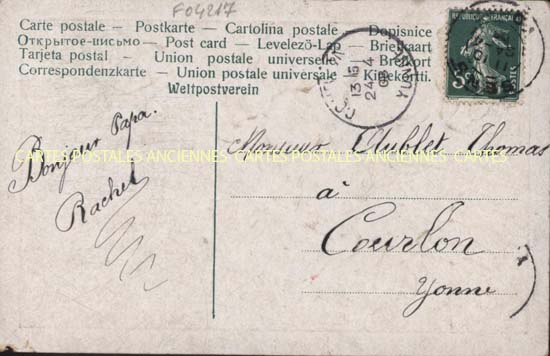 F04217
Carte postale — Postkarte — Cartolina postale — Dopisnice
Открытое-письмо — Post card — Levelezö-Lap — Briefkaart
Tarjeta postal — Union postale universelle — Brefkort
Correspondenzkarte — Union postale universale — Kirjekortti.
Weltpostverein
13 15
24 4
Bonjour Papa.
Rachel
CARTES POSTALES ANCIENNES CARTES POSTALES ANCIENNES CARTES
Monsieur Thomas
à
Courlon
Yonne